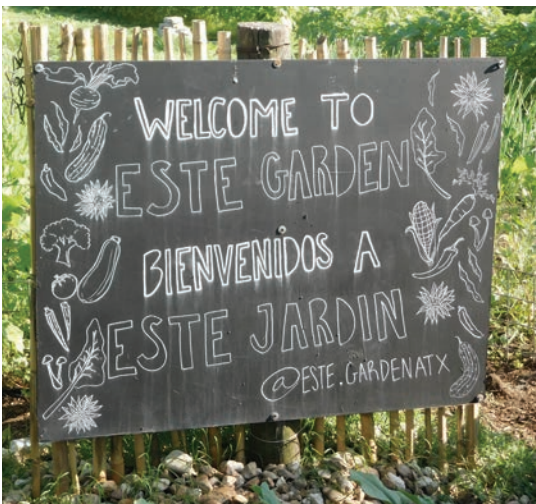 WELCOME TO
ESTE GARDEN
BIENVENIDOS A
ESTE JARDIN
@ESTE.GARDENATX